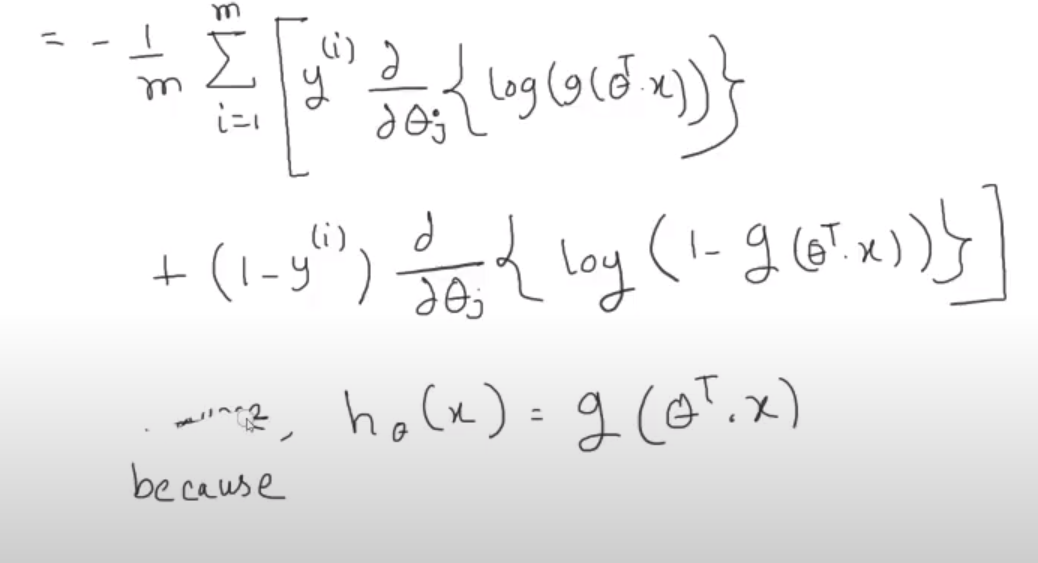 = - 1/m \sum_{i=1}^{m} [ y^{(i)} ∂/∂θ_j { log(g(θ^T.x)) }
+ (1-y^{(i)}) ∂/∂θ_j { log (1- g(θ^T.x)) } ]
, h_θ(x) = g(θ^T.x)
because